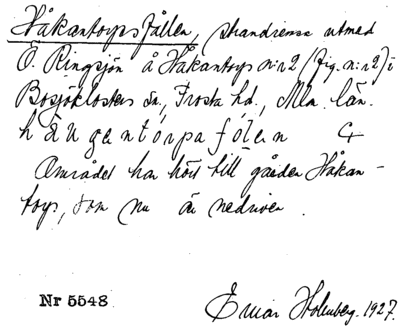 Håkantorpsfållen, strandremsa utmed
Ö. Ringsjön å Håkantorps n:r 2 (fig. n:r 2) i
Bosjöklosters sn, Frosta hd., Mlm. län.
Området har hört till gården Håkan-
torp, som nu är nedriven.
Nr 5548
Einar Holmberg. 1927.